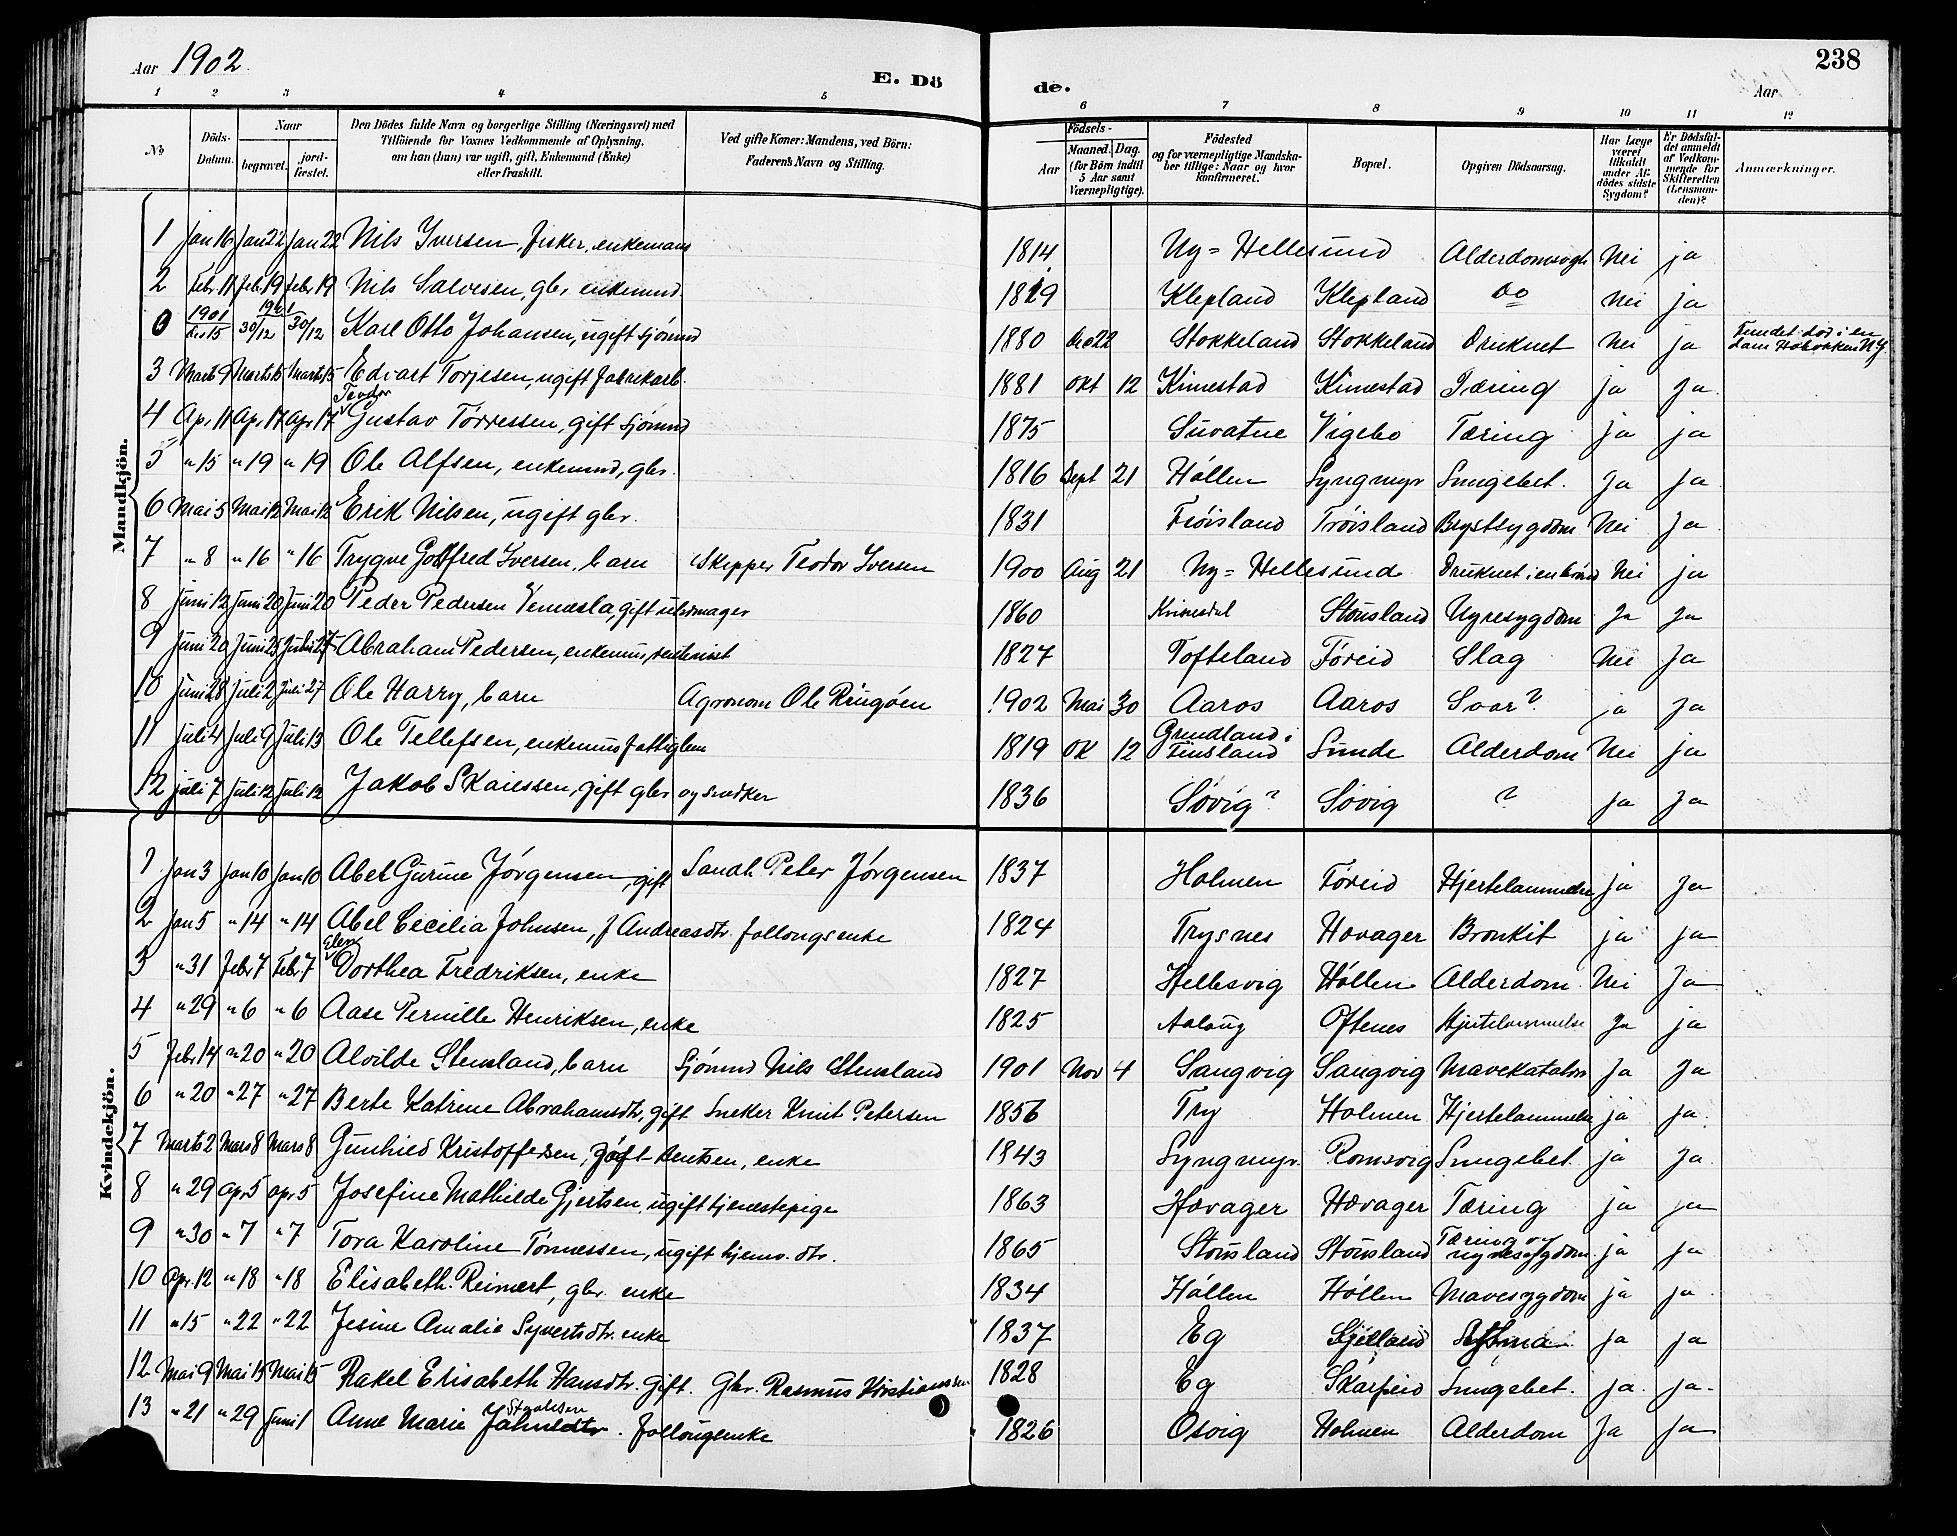 Aar 1902.
E. Dö de.
238
Aar
1 2 3 4 5 6 7 8 9 10 11 12
No.
Döds-Datum.
Naar
begravet.
jord-fæstet.
Den Dödes fulde Navn og borgerlige Stilling (Næringsvei) med
Tilföiende for Voxnes Vedkommende af Oplysning,
om han (hun) var ugift, gift, Enkemand (Enke)
eller fraskilt.
Ved gifte Koner: Mandens, ved Börn:
Faderens Navn og Stilling.
Födsels-
Aar
Maaned. Dag.
(for Börn indtil
5 Aar samt
Værnepligtige).
Födested
og for værnepligtige Mandska-
ber tillige: Naar og hvor
konfirmeret.
Bopæl.
Opgiven Dödsaarsag.
Har Læge
været
tilkaldt
under Af-
dödes sidste
Sygdom?
Er Dödsfal-
det anmeldt
af Vedkom-
mende for
Skifteretten
(Lensman-
den)?
Anmærkninger.
Mandkjön.
1 Jan 16 Jan 22 Jan 22 Nils Iversen, fisker, enkemand 1814 Ny=Hellesund Nei ja
2 Febr. 11 Feb 19 Febr 19 Nils Salvesen, gbr. enkemnd. 1819 Klepland Klepland do Nei ja
0 1901 Des 15 1901 30/12 30/12 Karl Otto Johansen, ugift sjömnd 1880 Des 22 Stokkeland Stokkeland Druknet Nei ja Fundet död i en
dam Hoboken NY
3 Marts 9 Marts 15 Marts 15 Edvart Torjesen, ugift fabrikarb. 1881 Okt 12 Kimestad Kimestad Tæring ja ja.
4 Ap. 11 Ap. 17 Apr 17 Teodor Gustav Törressen, gift sjömnd 1875 Suvatne Vigebo Tæring ja ja
5 " 15 " 19 " 19 Ole Alfsen, enkemnd, gbr. 1816 Sept 21 Höllen Lyngmyr Lungebet. ja ja
6 Mai 5 Mai 12 Mai 12 Erik Nilsen, ugift gbr. 1831 Fröisland Fröisland Brystsygdom Nei ja
7 " 8 " 16 " 16 Trygve Godtfred Iversen, barn Skipper Teodor Iversen 1900 Aug 21 Ny=Hellesund Druknet i en brönd Nei ja
8 Juni 12 Juni 20 Juni 20 Peder Pedersen Vennesla, gift uhrmager 1860 Kvinesdal Stousland Nyresygdom Ja ja
9 Juni 20 Juni 25 Juli 27 Abraham Pedersen, enkemn, 1827 Tofteland Föreid Slag Nei ja
10 Juni 28 Juli 2 Juli 27 Ole Harry, barn Agronom Ole Ringöen 1902 Mai 30 Aaros Aaros Svar? ja ja
11 Juli 4 Juli 9 Juli 13 Ole Tellefsen, enkemn fattiglem 1819 Ok 12 Grundland i
Finsland Sunde Alderdom Nei ja
12 Juli 7 Juli 12 Juli 12 Jakob Skaiessen, gift gbr og snedker 1836 Sövig? Sövig ? ja ja
Kvindekjön.
1 Jan 3 Jan 10 Jan 10 Abel Gurine Jörgensen, gift Sandh. Peter Jörgensen 1837 Holmen Föreid Hjertelammelse ja ja
2 Jan 5 " 14 " 14 Abel Cecilia Johnsen, f Andreasdtr. follougsenke 1824 Trysnes Hovager Bronkit ja ja
3 " 31 Febr 7 Febr 7 Elen Dorthea Fredriksen, enke 1827 Hellesvig Höllen Alderdom Nei Ja
4 " 29 " 6 " 6 Aase Pernille Henriksen, enke 1825 Aalaug Oftenes Hjertelammelse Ja ja
5 Febr. 14 " 20 " 20 Alvilde Stensland, barn Sjömnd Nils Stensland 1901 Nov 4 Langvig Langvig Mavekatahrr Ja ja
6 " 20 " 27 " 27 Berte Katrine Abrahamsdtr, gift Sneker Knut Petersen 1856 Try Holmen Hjertelammelse ja ja.
7 Marts 2 Mars 8 Mars 8 Gunhild Kristoffersen, enke 1843 Lyngmyr. Romsvig Lungebet. ja ja
8 " 29 Apr 5 apr 5 Josefine Mathilde Gjertsen, ugift tjenestepige 1863 Hovager Hovager Tæring ja ja
9 " 30 " 7 " 7 Tora Karoline Tönnessen, ugift hjemv. dtr. 1865 Stousland Stousland Tæring og
nyresygdom. ja ja
10 Apr. 12 " 18 " 18 Elisabeth Reinert, gbr. enke 1834 Höllen Höllen Mavesygdom ja ja
11 " 15 " 22 " 22 Jesine Amalie Syvertsdtr. enke 1837 Eg Astma ja ja
12 Mai 9 Mai 15 Mai 15 Rakel Elisabeth Hansdtr. gift. Gbr. Rasmus Kristianssen 1828 Eg Skarpeid Lungebet. ja. ja.
13 " 21 " 29 Juni 1 Anne Marie Jahnsdtr. Staalesen follougsenke 1826 Osvig Holmen Alderdom Ja ja